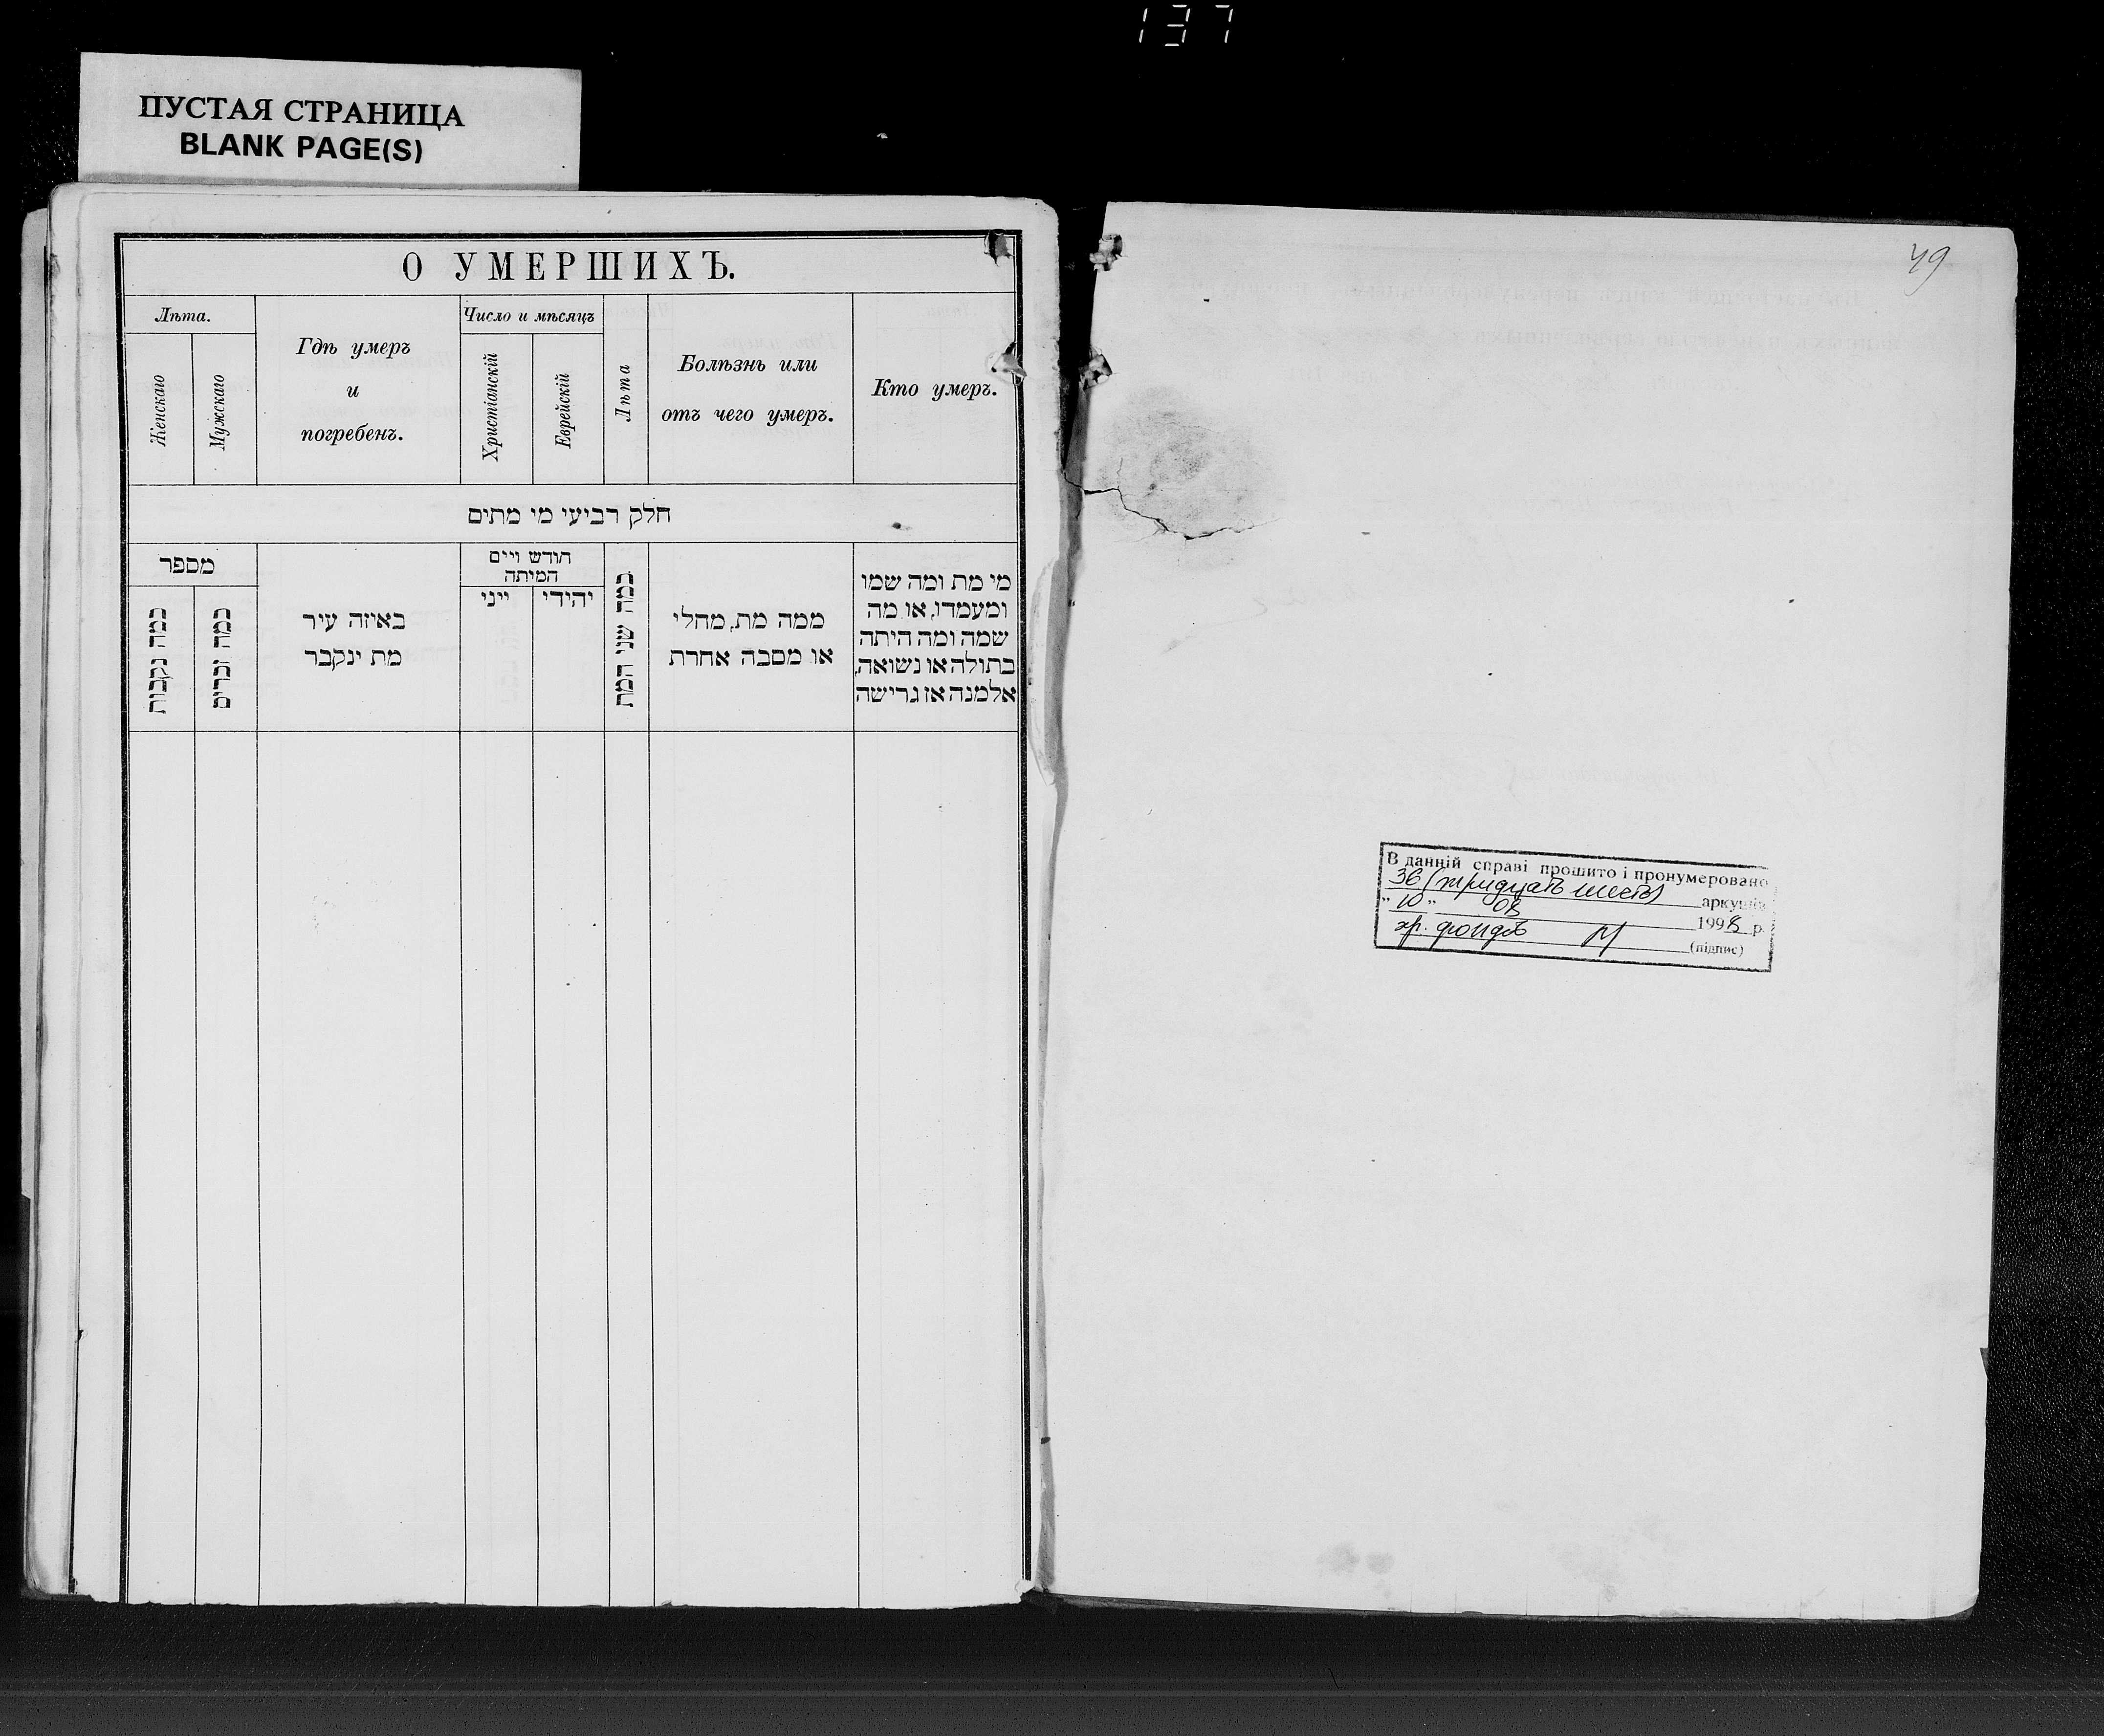 137
ПУСТАЯ СТРАНИЦА
BLANK PAGE(S)
О УМЕРШИХЪ.
Лѣта.
Женскаго
Мужскаго
Гдѣ умеръ
и
погребенъ.
Число и мѣсяцъ
Христіанскій
Еврейскій
Лѣта
Болѣзнь или
отъ чего умеръ.
Кто умеръ.
חלק רביעי מי מתים
מספר
כמה נקבות
כמה זכרים
באיזה עיר
מת ינקבר
חודש ויים
המיתה
ייני
יהודי
כמה שני המת
ממה מת, מחלי
או מסבה אחרת
מי מת ומה שמו
ומעמדו, או מה
שמה ומה היתה
בתולה או נשואה,
אלמנה אז גרישה
49
В данній справі прошито і пронумеровано
36 (тридцать шесть) аркушів
"10" 08 1998 р.
хр. фондів
(підпис)